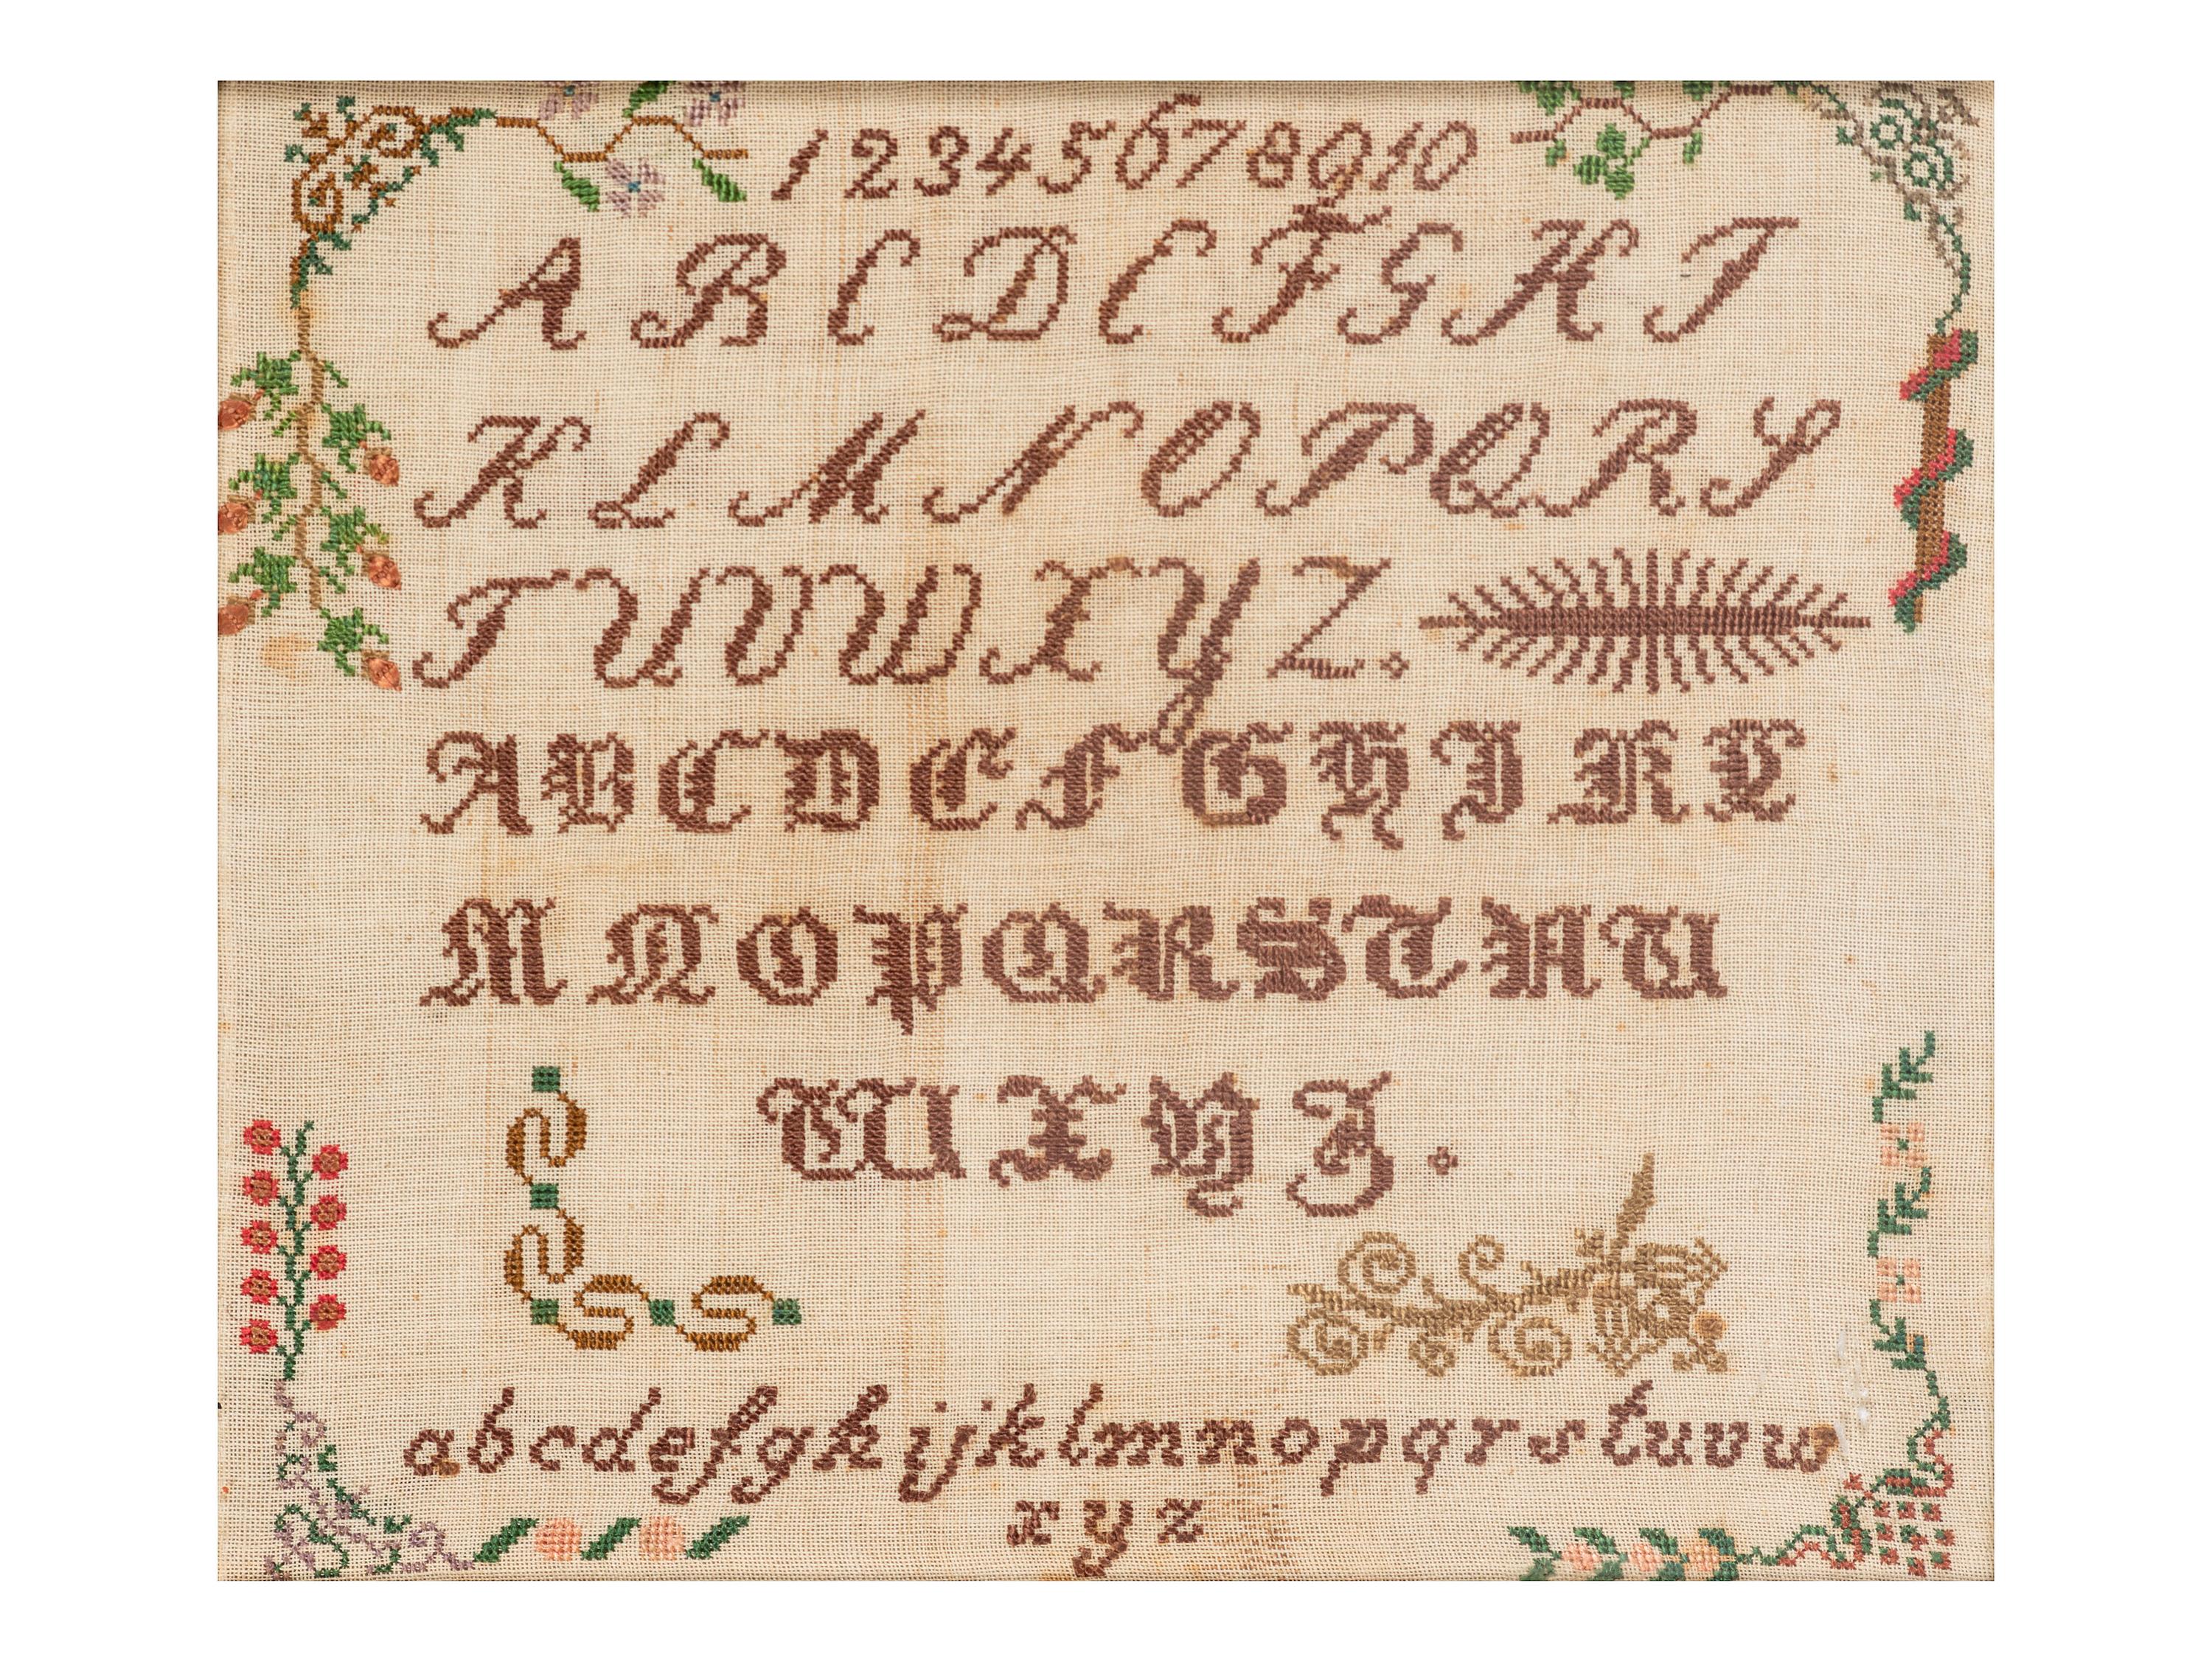 1 2 3 4 5 6 7 8 9 10
A B C D E F G H I
K L M N O P Q R S
T U V W X Y Z.
A B C D E F G H I K L
M N O P Q R S T V U
W X Y Z.
a b c d e f g h i j k l m n o p q r s t u v w
x y z